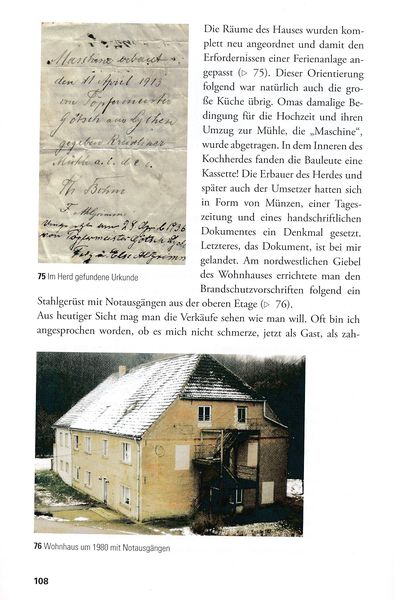 Maschine erbaut
den 11 April 1913
von Töpfermeister
Götsch aus Lychen
gegeben Kreuliner
Mühle a. t. d c c.
Th Böhm
F. Ahlgrimm
den 24 April 1936
von Töpfermeister Götsch
Fritz u. Else Ahlgrimm
75 Im Herd gefundene Urkunde
Die Räume des Hauses wurden kom-
plett neu angeordnet und damit den
Erfordernissen einer Ferienanlage an-
gepasst (▷ 75). Dieser Orientierung
folgend war natürlich auch die gro-
ße Küche übrig. Omas damalige Be-
dingung für die Hochzeit und ihren
Umzug zur Mühle, die „Maschine“,
wurde abgetragen. In dem Inneren des
Kochherdes fanden die Bauleute eine
Kassette! Die Erbauer des Herdes und
später auch der Umsetzer hatten sich
in Form von Münzen, einer Tages-
zeitung und eines handschriftlichen
Dokumentes ein Denkmal gesetzt.
Letzteres, das Dokument, ist bei mir
gelandet. Am nordwestlichen Giebel
des Wohnhauses errichtete man den
Brandschutzvorschriften folgend ein
Stahlgerüst mit Notausgängen aus der oberen Etage (▷ 76).
Aus heutiger Sicht mag man die Verkäufe sehen wie man will. Oft bin ich
angesprochen worden, ob es mich nicht schmerze, jetzt als Gast, als zah-
76 Wohnhaus um 1980 mit Notausgängen
108